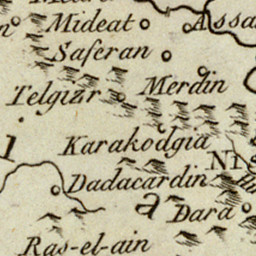 Mideat
Assa
Saferan
Merdin
Telgizr
Karakodgia
Ni
Dadacardin
a Dara
Ras-el-ain